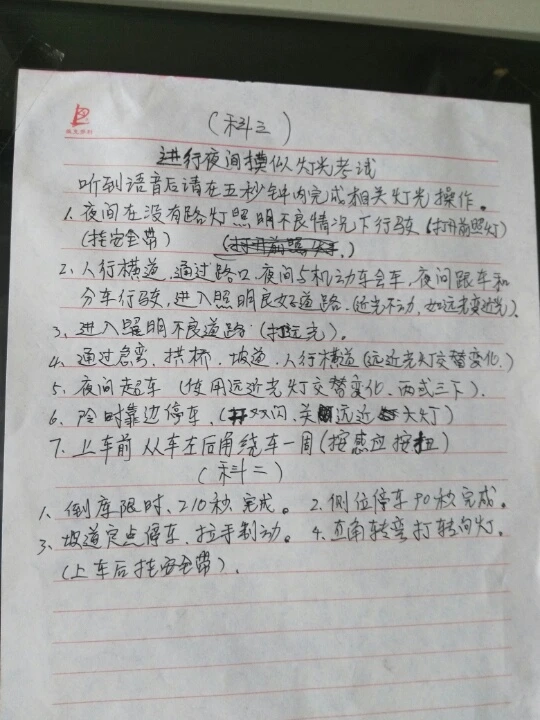 (科三)
进行夜间模似灯光考试
听到语音后请在五秒钟内完成相关灯光操作。
1、夜间在没有路灯照明不良情况下行驶(打开前照灯)
(挂安全带)
2、人行横道,通过路口,夜间与机动车会车,夜间跟车和
分车行驶,进入照明良好道路.(近光不动,如远光变近光).
3、进入照明不良道路(打远光)。
4、通过急弯,拱桥,坡道,人行横道(远近光灯交替变化.)
5、夜间超车(使用远近光灯交替变化,两式三下).
6、令时靠边停车,(双闪,关远近大灯)
7、上车前从车左后角绕车一周(按感应按扭)
(科二)
1、倒库限时、210秒完成。 2、侧位停车90秒完成。
3、坡道定点停车,拉手制动。 4、直角转弯打转向灯.
(上车后挂安全带).